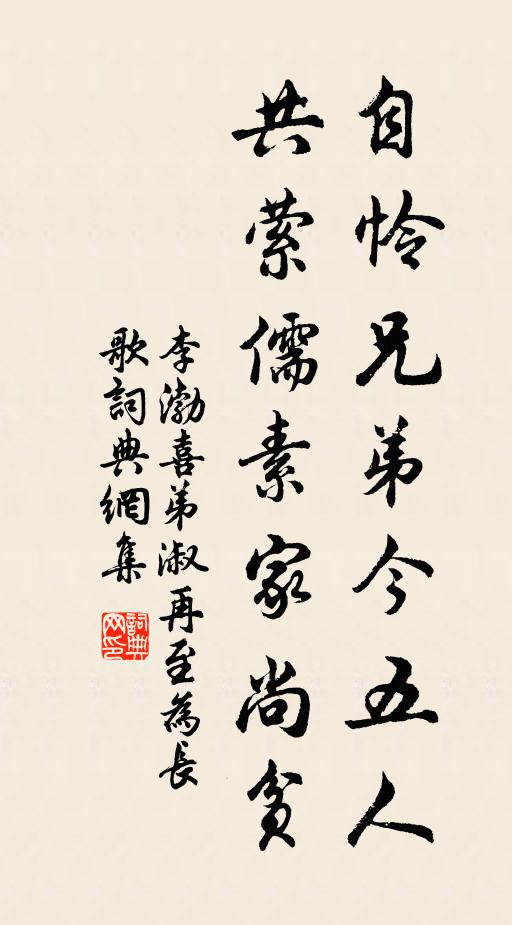 自怜兄弟今五人
共萦儒素家尚贫
李渤喜弟淑再至為長
歌詞典網集
詞典
网印